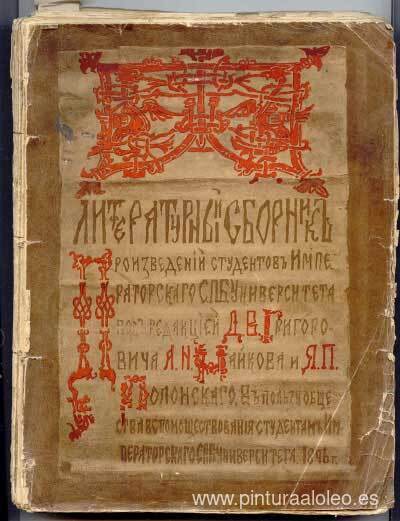 ЛИТЕРАТУРНЫЙ СБОРНИКЪ
ПРОИЗВЕДЕНІЙ СТУДЕНТОВЪ ИМПЕ
РАТОРСКАГО СПБ УНИВЕРСИТЕТА
ПОДЪ РЕДАКЦІЕЙ Д.В. ГРИГОРО
ВИЧА А.Н. МАЙКОВА И Я.П.
ПОЛОНСКАГО. ВЪ ПОЛЬЗУ ОБЩЕ
СТВА ВСПОМОЩЕСТВОВАНІЯ СТУДЕНТАМЪ ИМ
ПЕРАТОРСКАГО СПБ УНИВЕРСИТЕТА. 1896 г.
www.pinturaaloleo.es